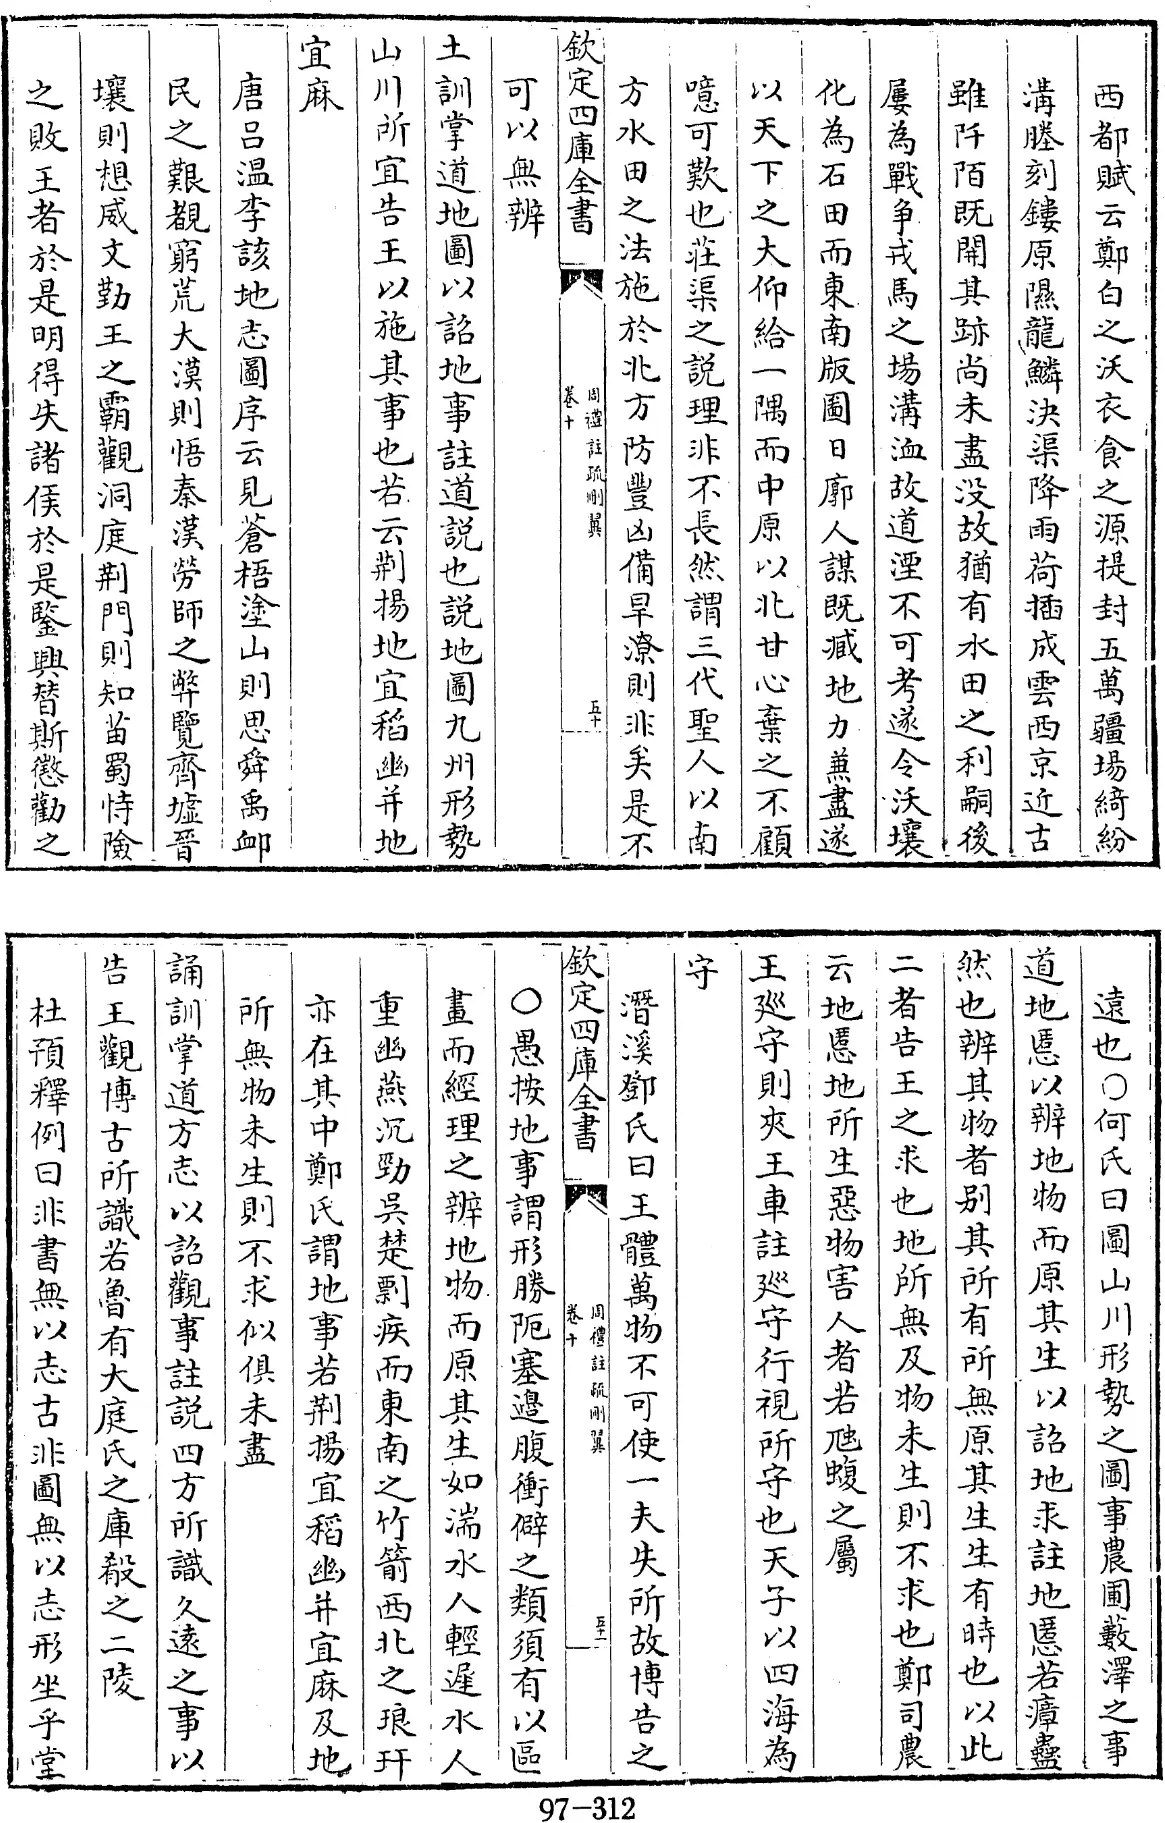 西都賦云鄭白之沃衣食之源提封五萬疆場綺紛
溝塍刻鏤原隰龍鱗決渠降雨荷插成雲西京近古
雖阡陌既開其跡尚未盡没故猶有水田之利嗣後
屢為戰争戎馬之場溝洫故道湮不可考遂令沃壤
化為石田而東南版圖日廓人謀既臧地力兼盡遂
以天下之大仰給一隅而中原以北甘心棄之不顧
噫可歎也莊渠之説理非不長然謂三代聖人以南
方水田之法施於北方防豐凶備旱潦則非矣是不
欽定四庫全書
周禮註疏刪翼
卷十
五十
可以無辨
土訓掌道地圖以詔地事註道説也説地圖九州形勢
山川所宜告王以施其事也若云荆揚地宜稻幽并地
宜麻
唐吕温李該地志圖序云見蒼梧塗山則思舜禹卹
民之艱覩窮荒大漠則悟秦漢勞師之弊覽齊墟晉
壤則想威文勤王之霸觀洞庭荆門則知苗蜀恃險
之敗王者於是明得失諸侯於是鑒興替斯懲勸之
遠也○何氏曰圖山川形勢之圖事農圃藪澤之事
道地慝以辨地物而原其生以詔地求註地慝若瘴蠱
然也辨其物者别其所有所無原其生生有時也以此
二者告王之求也地所無及物未生則不求也鄭司農
云地慝地所生惡物害人者若虺蝮之屬
王廵守則夾王車註廵守行視所守也天子以四海為
守
潛溪鄧氏曰王體萬物不可使一夫失所故博告之
欽定四庫全書
周禮註疏刪翼
卷十
五十一
○愚按地事謂形勝阨塞邊腹衝僻之類須有以區
畫而經理之辨地物而原其生如湍水人輕遲水人
重幽燕沉勁吳楚剽疾而東南之竹箭西北之琅玕
亦在其中鄭氏謂地事若荆揚宜稻幽并宜麻及地
所無物未生則不求似俱未盡
誦訓掌道方志以詔觀事註説四方所識久遠之事以
告王觀博古所識若魯有大庭氏之庫殽之二陵
杜預釋例曰非書無以志古非圖無以志形坐乎堂
97-312